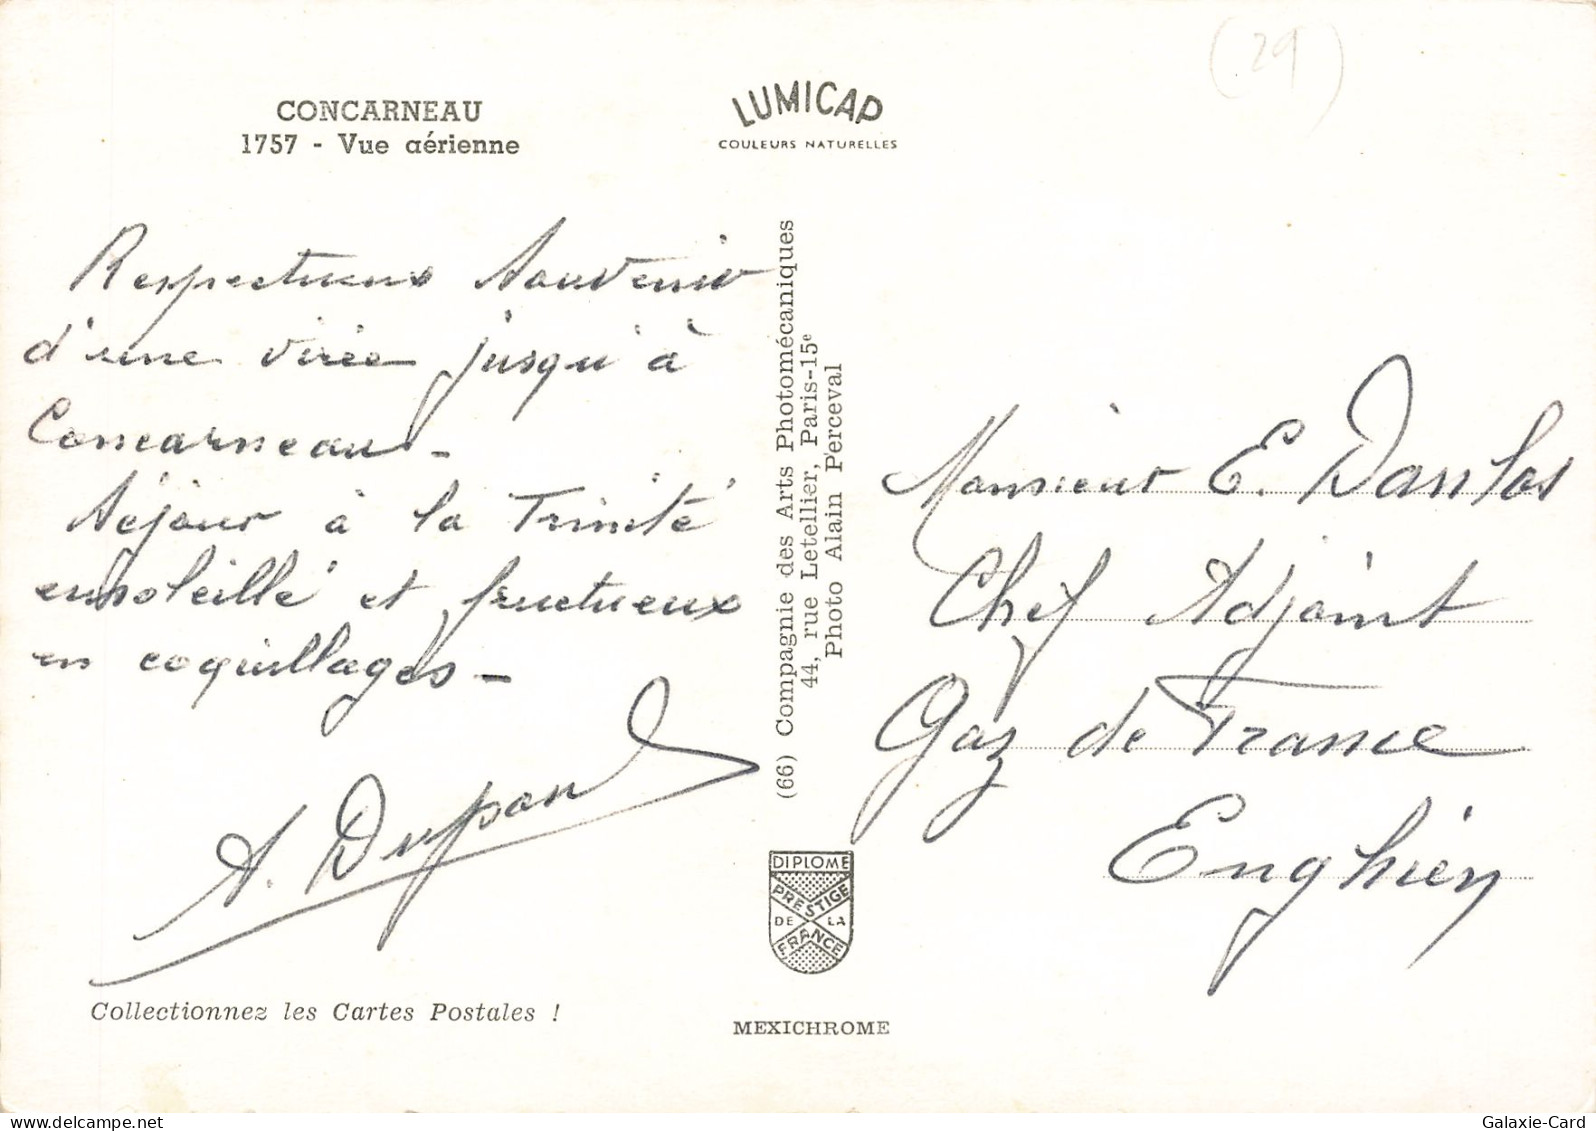 (29)
CONCARNEAU
1757 - Vue aérienne
LUMICAP
COULEURS NATURELLES
Respectueux souvenir
d'une virée jusqu'à
Concarneau -
Séjour à la Trinité
ensoleillé et fructueux
en coquillages -
A. Dupond
Collectionnez les Cartes Postales !
(66) Compagnie des Arts Photomécaniques
44, rue Letellier, Paris-15e
Photo Alain Perceval
DIPLOME
PRESTIGE
DE LA
FRANCE
MEXICHROME
Monsieur E. Danlos
Chef Adjoint
Gaz de France
Enghien
Galaxie-Card